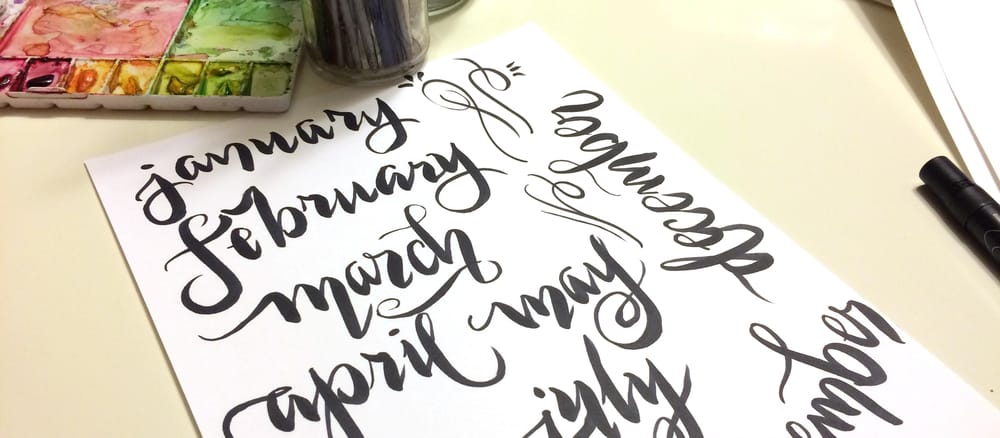 january
february
march
april may
july
december